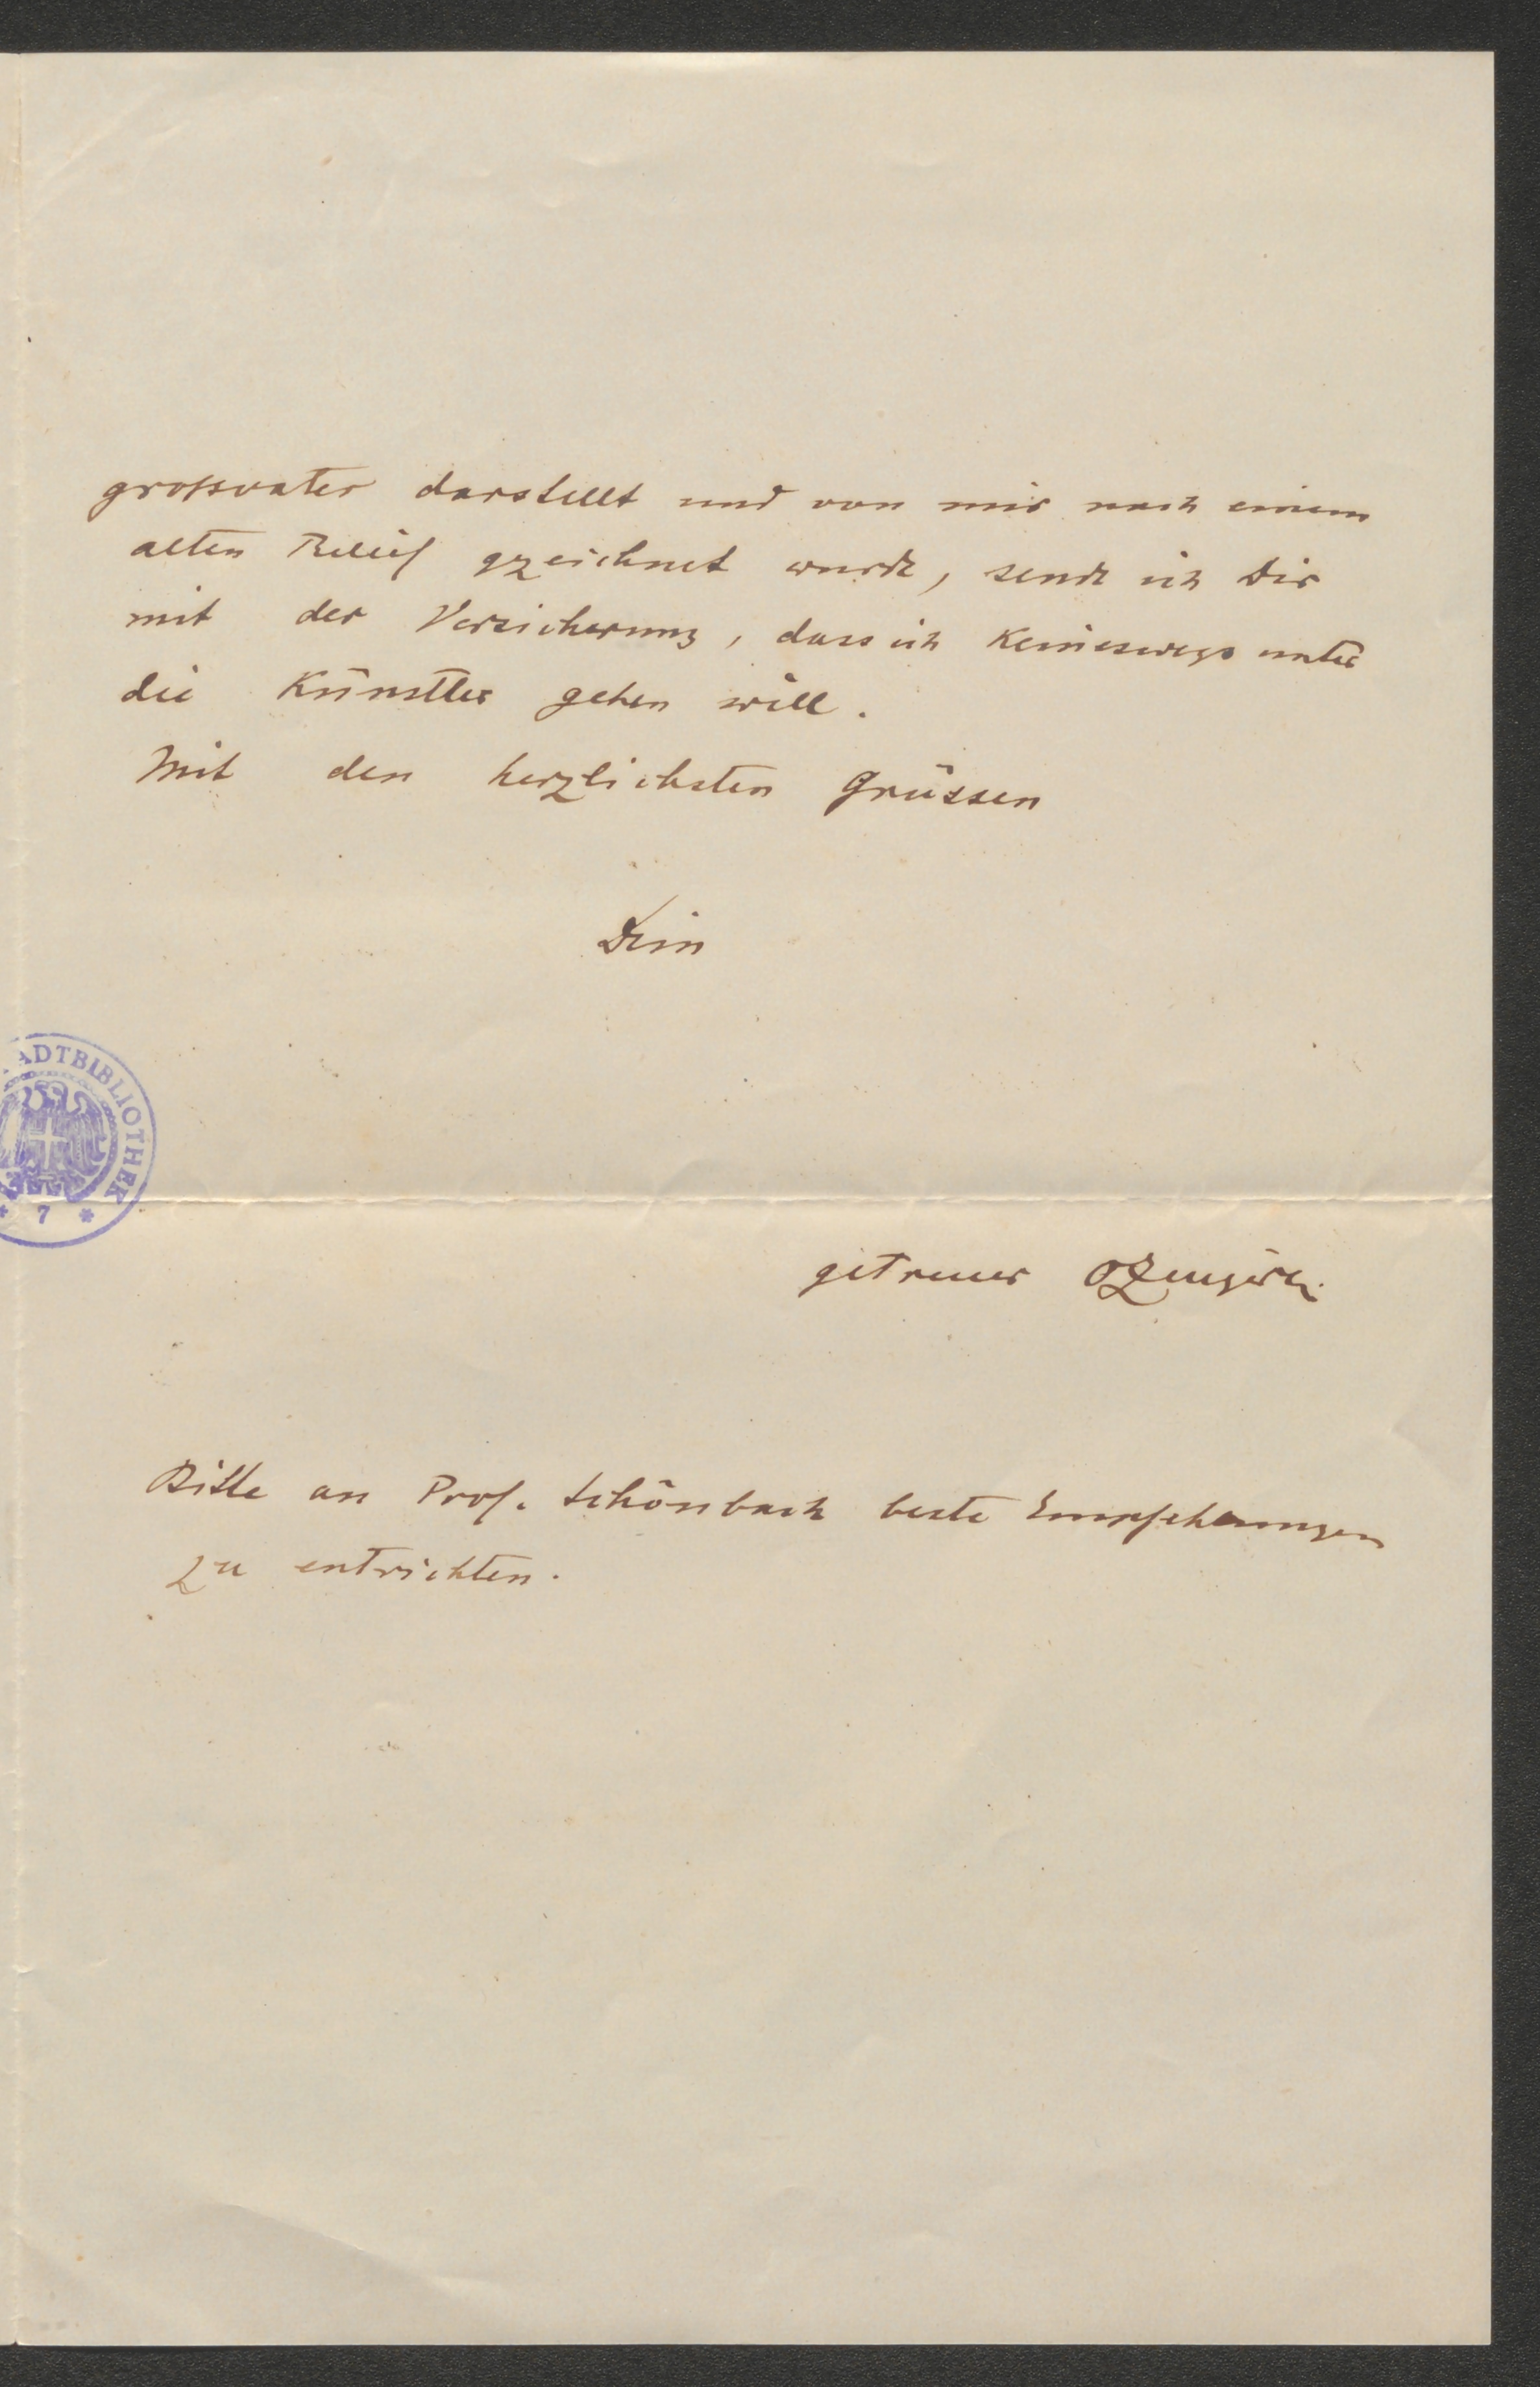 grossvater darstellt und von mir nach einem
alten Relief gzeichnet wurde, sende ich Dir
mit der Versicherung, dass ich keineswegs unter
die Künstler gehen will.
Mit den herzlichsten Grüssen
Dein
ADTBIBLIOTHEK
* 7 *
getreuer OZingerle.
Bitte an Prof. Schönbach beste Empfehlungen
zu entrichten.